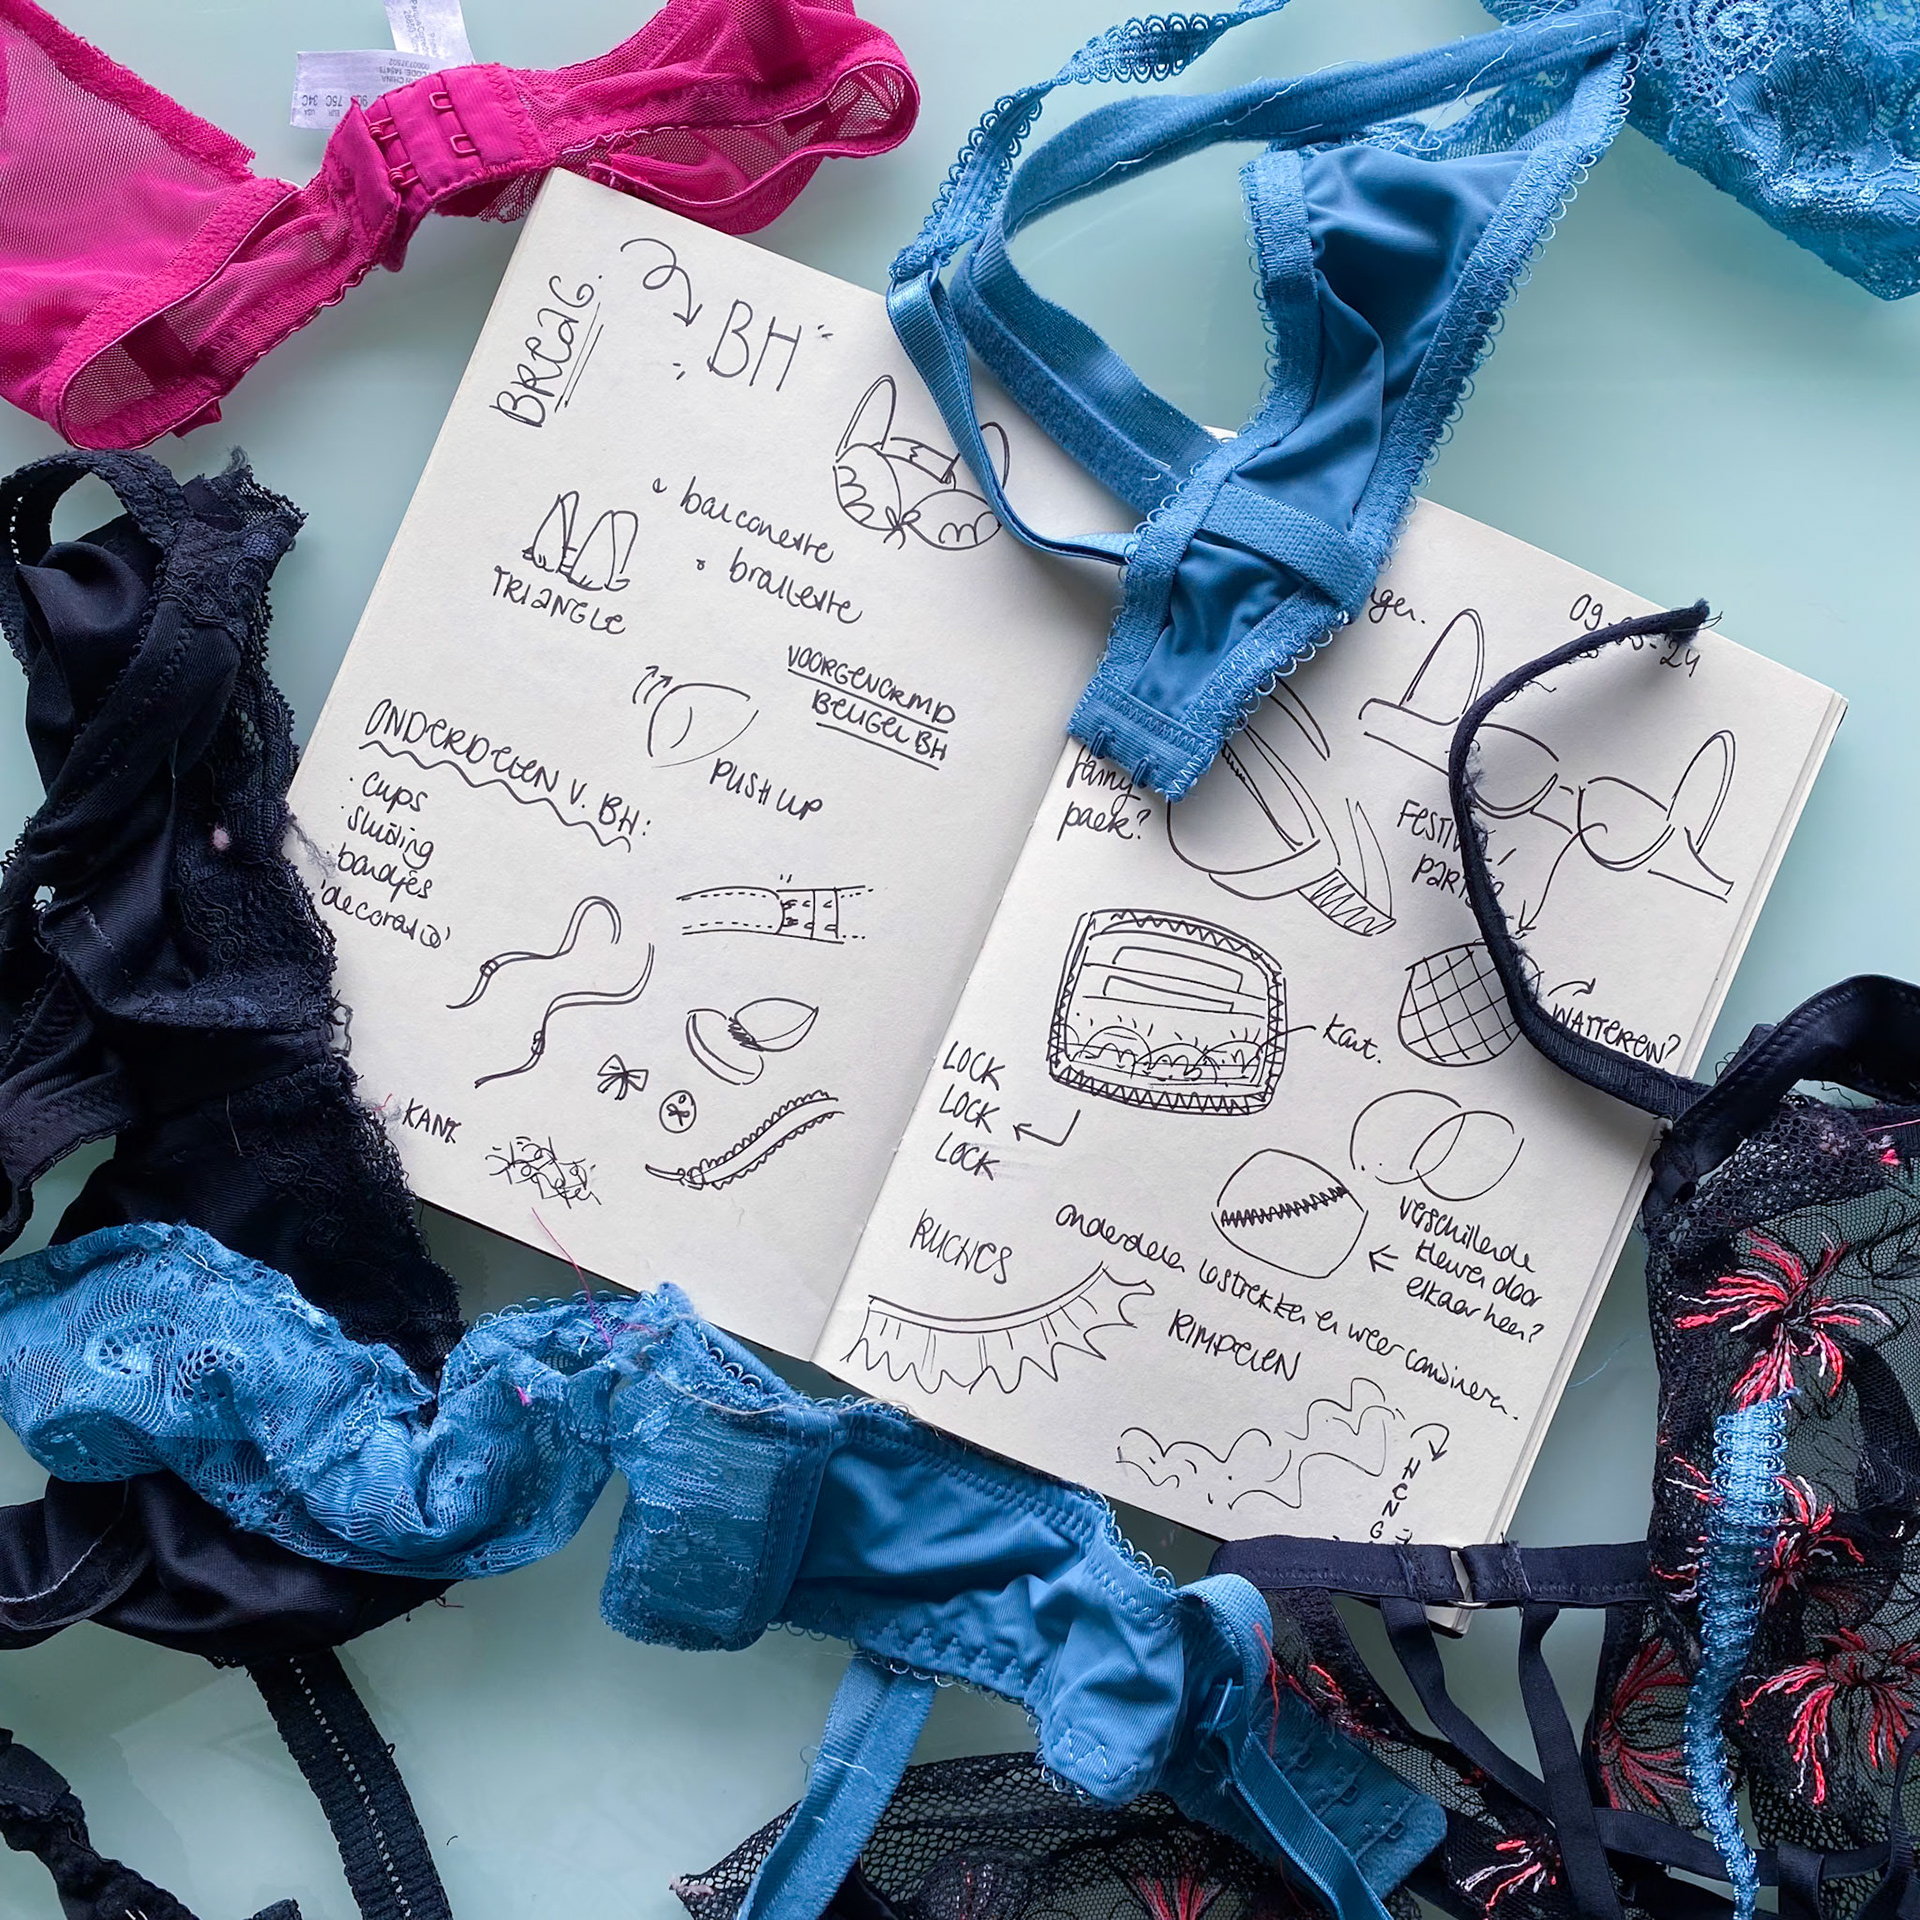 BREAG.
BH
balconette
bralette
TRIANGLE
VOORGEVORMD
BEUGEL BH
PUSH UP
ONDERDELEN V. BH:
cups
sluiting
bandjes
'decoratie'
KANT
09-
-24
fanny
pack?
FESTIV
WATTEREN?
Kant.
LOCK
LOCK
LOCK
verschillende
kleuren door
elkaar heen?
RUCHES
onderdelen lostrekken en weer combineren.
RIMPELEN
75C 34C